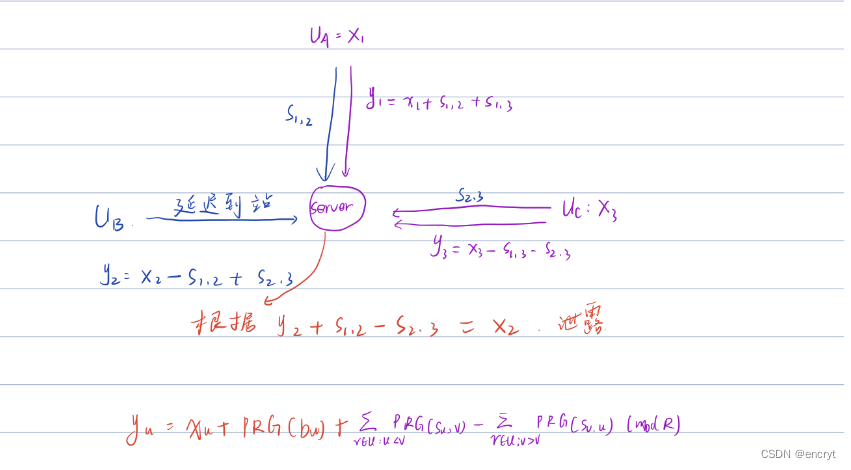 U_A = x_1
S_{1,2}
y_1 = x_1 + S_{1,2} + S_{1,3}
U_B
延迟到站
server
S_{2.3}
U_C : x_3
y_3 = x_3 - S_{1,3} - S_{2.3}
y_2 = x_2 - S_{1,2} + S_{2.3}
根据 y_2 + S_{1,2} - S_{2.3} = x_2 . 泄露
y_u = x_u + PRG(b_u) + Σ_{v∈U:u<v} PRG(S_{u,v}) - Σ_{v∈U:u>v} PRG(S_{v,u}) (mod R)
CSDN @encryt